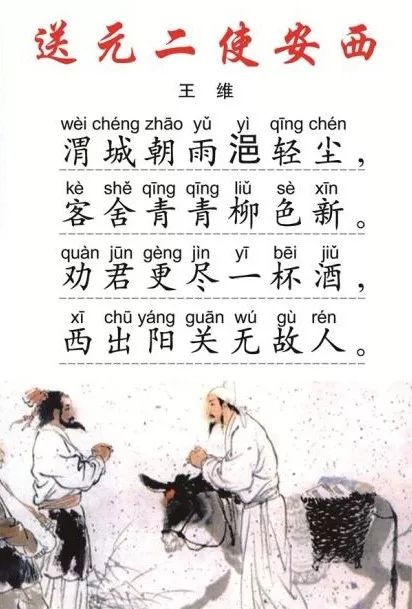 送元二使安西
王维
wèi chéng zhāo yǔ yì qīng chén
渭城朝雨浥轻尘，
kè shě qīng qīng liǔ sè xīn
客舍青青柳色新。
quàn jūn gèng jìn yī bēi jiǔ
劝君更尽一杯酒，
xī chū yáng guān wú gù rén
西出阳关无故人。